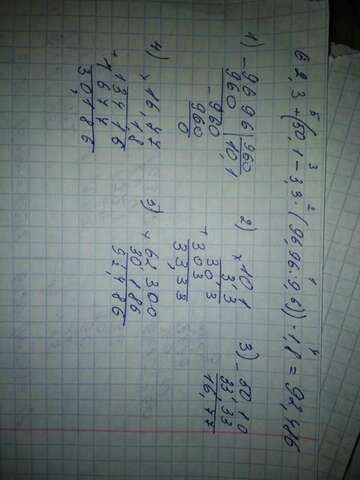 5 3 2 1 4
62,3+(50,1-3,3·(96,96:9,6))·1,8=92,486
1) -9696|960
960 10,1
-960
960
0
2) ×10,1
3,3
+303
303
33,33
3) -50,10
33,33
16,77
4) ×16,77
1,8
+13416
1677
30,186
5) +62,300
30,186
92,486